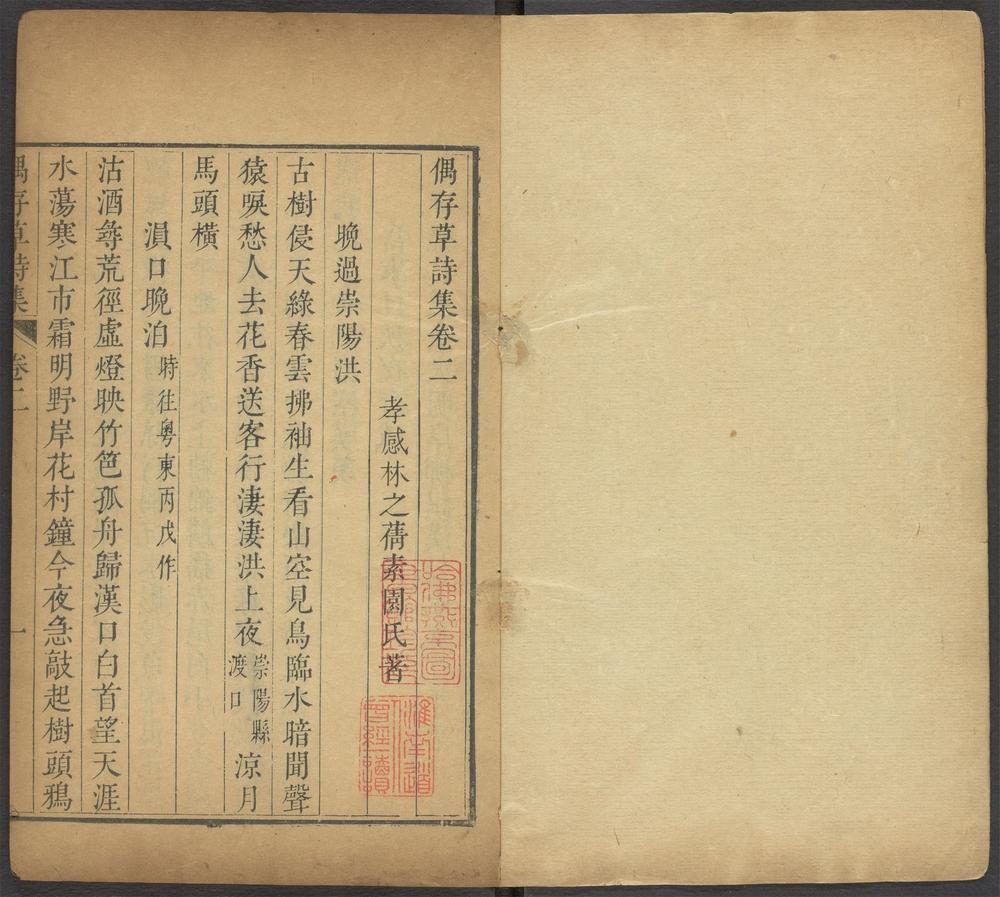 偶存草詩集卷二
孝感林之蒨素園氏著
晚過崇陽洪
古樹侵天綠春雲拂袖生看山空見鳥臨水暗聞聲
猿唳愁人去花香送客行淒淒洪上夜崇陽縣渡口涼月
馬頭橫
溳口晚泊時往粵東丙戌作
沽酒尋荒徑虛燈映竹笆孤舟歸漢口白首望天涯
水蕩寒江市霜明野岸花村鐘今夜急敲起樹頭鴉
偶存草詩集 卷二 一
淮南道
曾經讀